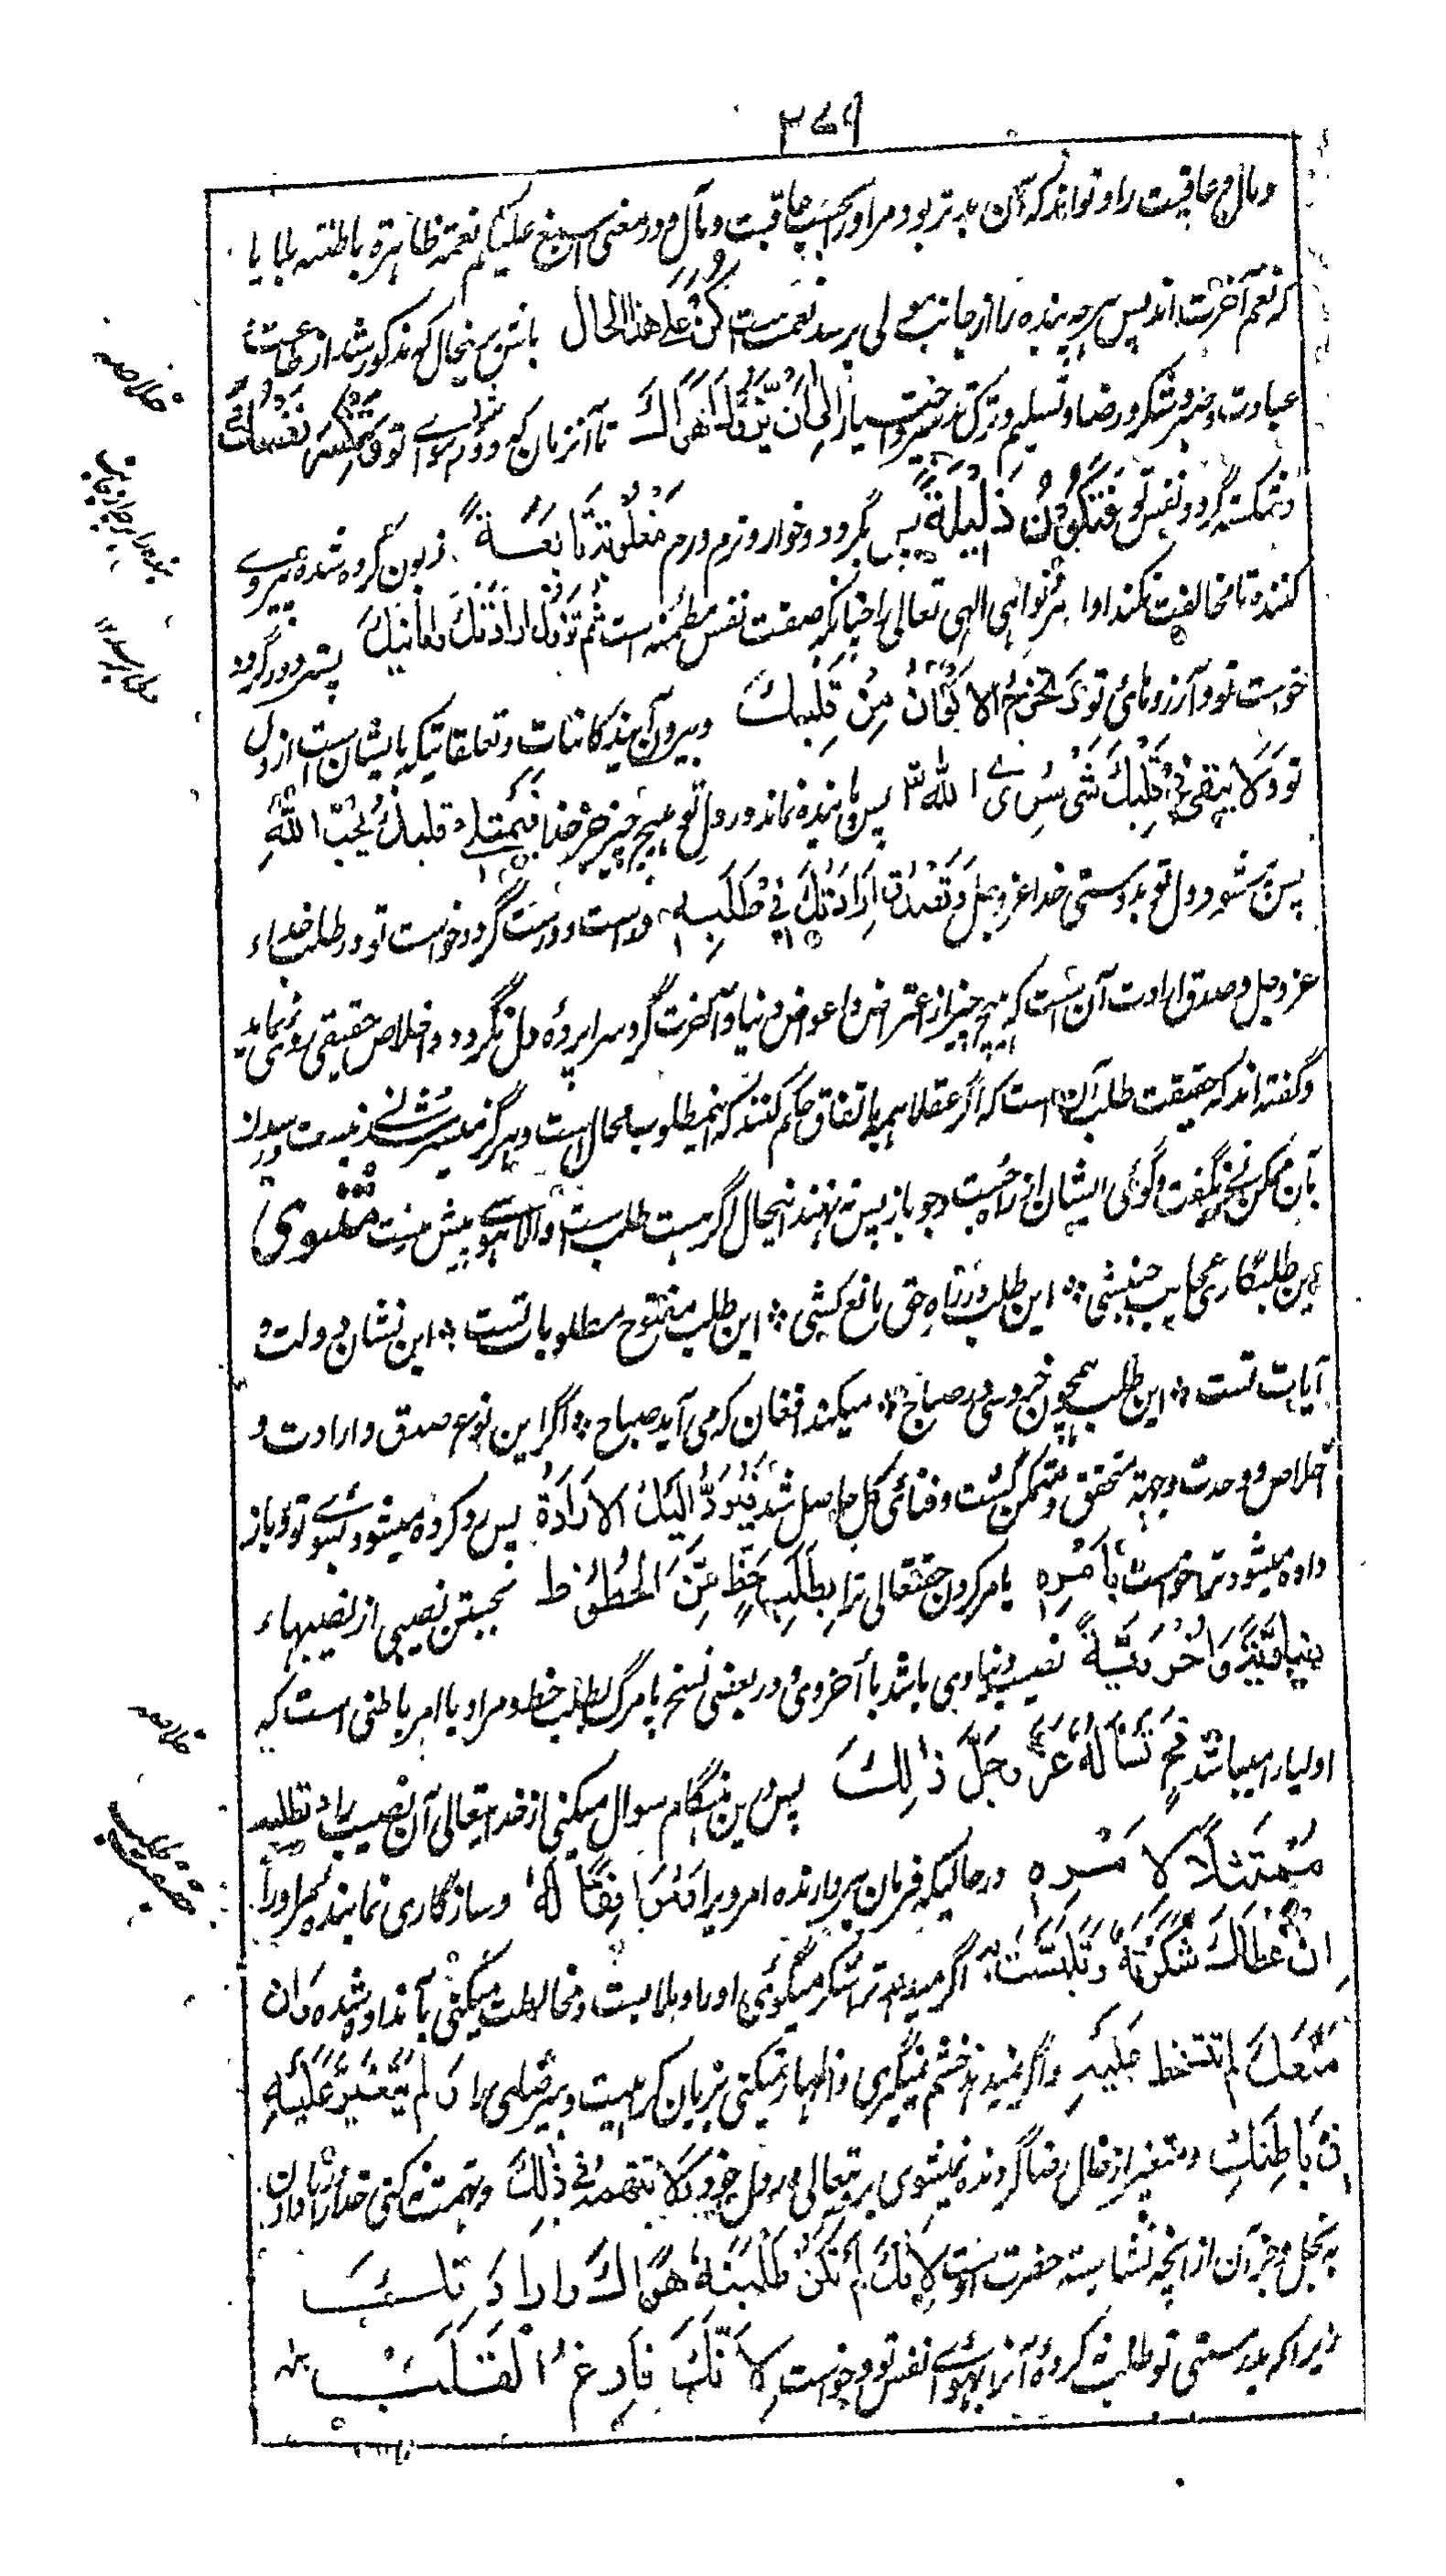 ۲۷۹
و مآل و عاقبت را و تواند که آن بد تر بود مر او را بحسب عاقبت و مآل و در معنی اسبغ علیکم نعمه ظاهرة و باطنة بلایا
که نعم آخرت اند پس هرچه بنده را از جانب مولی برسد نعمت است كُنْ عَلَى هذا الحال باش برین حال که مذکور شد از طاعت
عبادت و صبر و شکر و رضا و تسلیم و ترک تدبیر و اختیار إلى أن يزول هواك تا آن زمان که دور شود هوای تو فتنكسر نفسك
و شکسته گردد نفس تو فتكون ذليلة پس گردد خوار و نرم و رم مغلوبة تابعة زبون کرده شده پیروی
کننده تا مخالفت نکند اوامر و نواهی الهی تعالی را چنانکه صفت نفس مطمئنه است ثم تزول ارادتك وامانيك پستر دور گردد
خواست تو و آرزوهای تو وتخرج الاكوان من قلبك و بیرون آیند کائنات و تعلقاتیکه بایشان است از دل
تو ولا يبقى في قلبك شيء سوى الله پس باینده نماند در دل تو هیچ چیز جز خدا فيمتلئ قلبك بحب الله
پس پر شود دل تو بدوستی خدا عز و جل وتصدق ارادتك في طلبه و راست و درست گردد خواست تو در طلب خداء
عز و جل و صدق ارادت آن است که هیچ چیز از اعتراض و اعواض دنیا و آخرت گرد سراپرده دل نگردد و اخلاص حقیقی رو نماید
و گفته اند که حقیقت طلب آن است که اگر عقلا همه باتفاق حکم کنند که این مطلوب محال است و هرگز میسر شدنی نیست و رسیدن
بآن ممکن نی بگفت و گوی ایشان از راه جست و جو باز پس نه نهند این حال اگر هست طلب است والا هوسی بیش نیست مثنوی
این طلبگاری عجایب جنبشی * این طلب در راه حق مانع کشی * این طلب مفتوح مطلوبات تست * این نشان دولت و
آیات تست * این طلب همچون خروسی در صباح * میکند افغان که می آید صباح * اگر این نوع صدق و ارادت و
اخلاص و وحدت وجهة متحقق و متمکن گشت و فنائی کل حاصل شد فيرد اليك الارادة پس رد کرده میشود بسوی تو و باز
داده میشود ترا خواست بأمره بامر کردن حقتعالی ترا بطلب حظ من الحظوظ بجستن نصیبی از نصیبهاء
دنياوية واخروية نصیب دنیاوی باشد یا اخروی و در بعضی نسخ بامرك بطلب حظ و مراد با امر باطنی است که
اولیا را میباشد فحينئذ تسأله عز وجل ذلك پس درین هنگام سوال میکنی از خدایتعالی آن نصیب را و تطلبه
ممتثلاً لأمره در حالیکه فرمان بردارنده امر ویرا موافقا له و سازگاری نماینده مر او را
ان اعطاك شكرته وتلبست به اگر میدهد ترا شکر میگوئی او را و ملابست و مخالطت میکنی بآن داده شده وان
منعك لم تتسخط عليه و اگر نمیدهد خشم نمیگیری و اظهار نمیکنی بزبان کراهیت و بیرضائی را ولم يتغير عليه
في باطنك و متغیر از حال رضا گردنده نمیشوی بر ویتعالی در دل خود ولا تتهمه في ذلك و تهمت نه کنی خدا را در آن ندادن
به بخل و جز آن از آنچه نشایسته حضرت اوست لأنك لم تكن طلبته هواك و ارادتك
زیرا که بدرستی تو طلب نه کرده آنرا بهوای نفس تو و خواست لأنك فارغ القلب
خلاصه
خلاصه